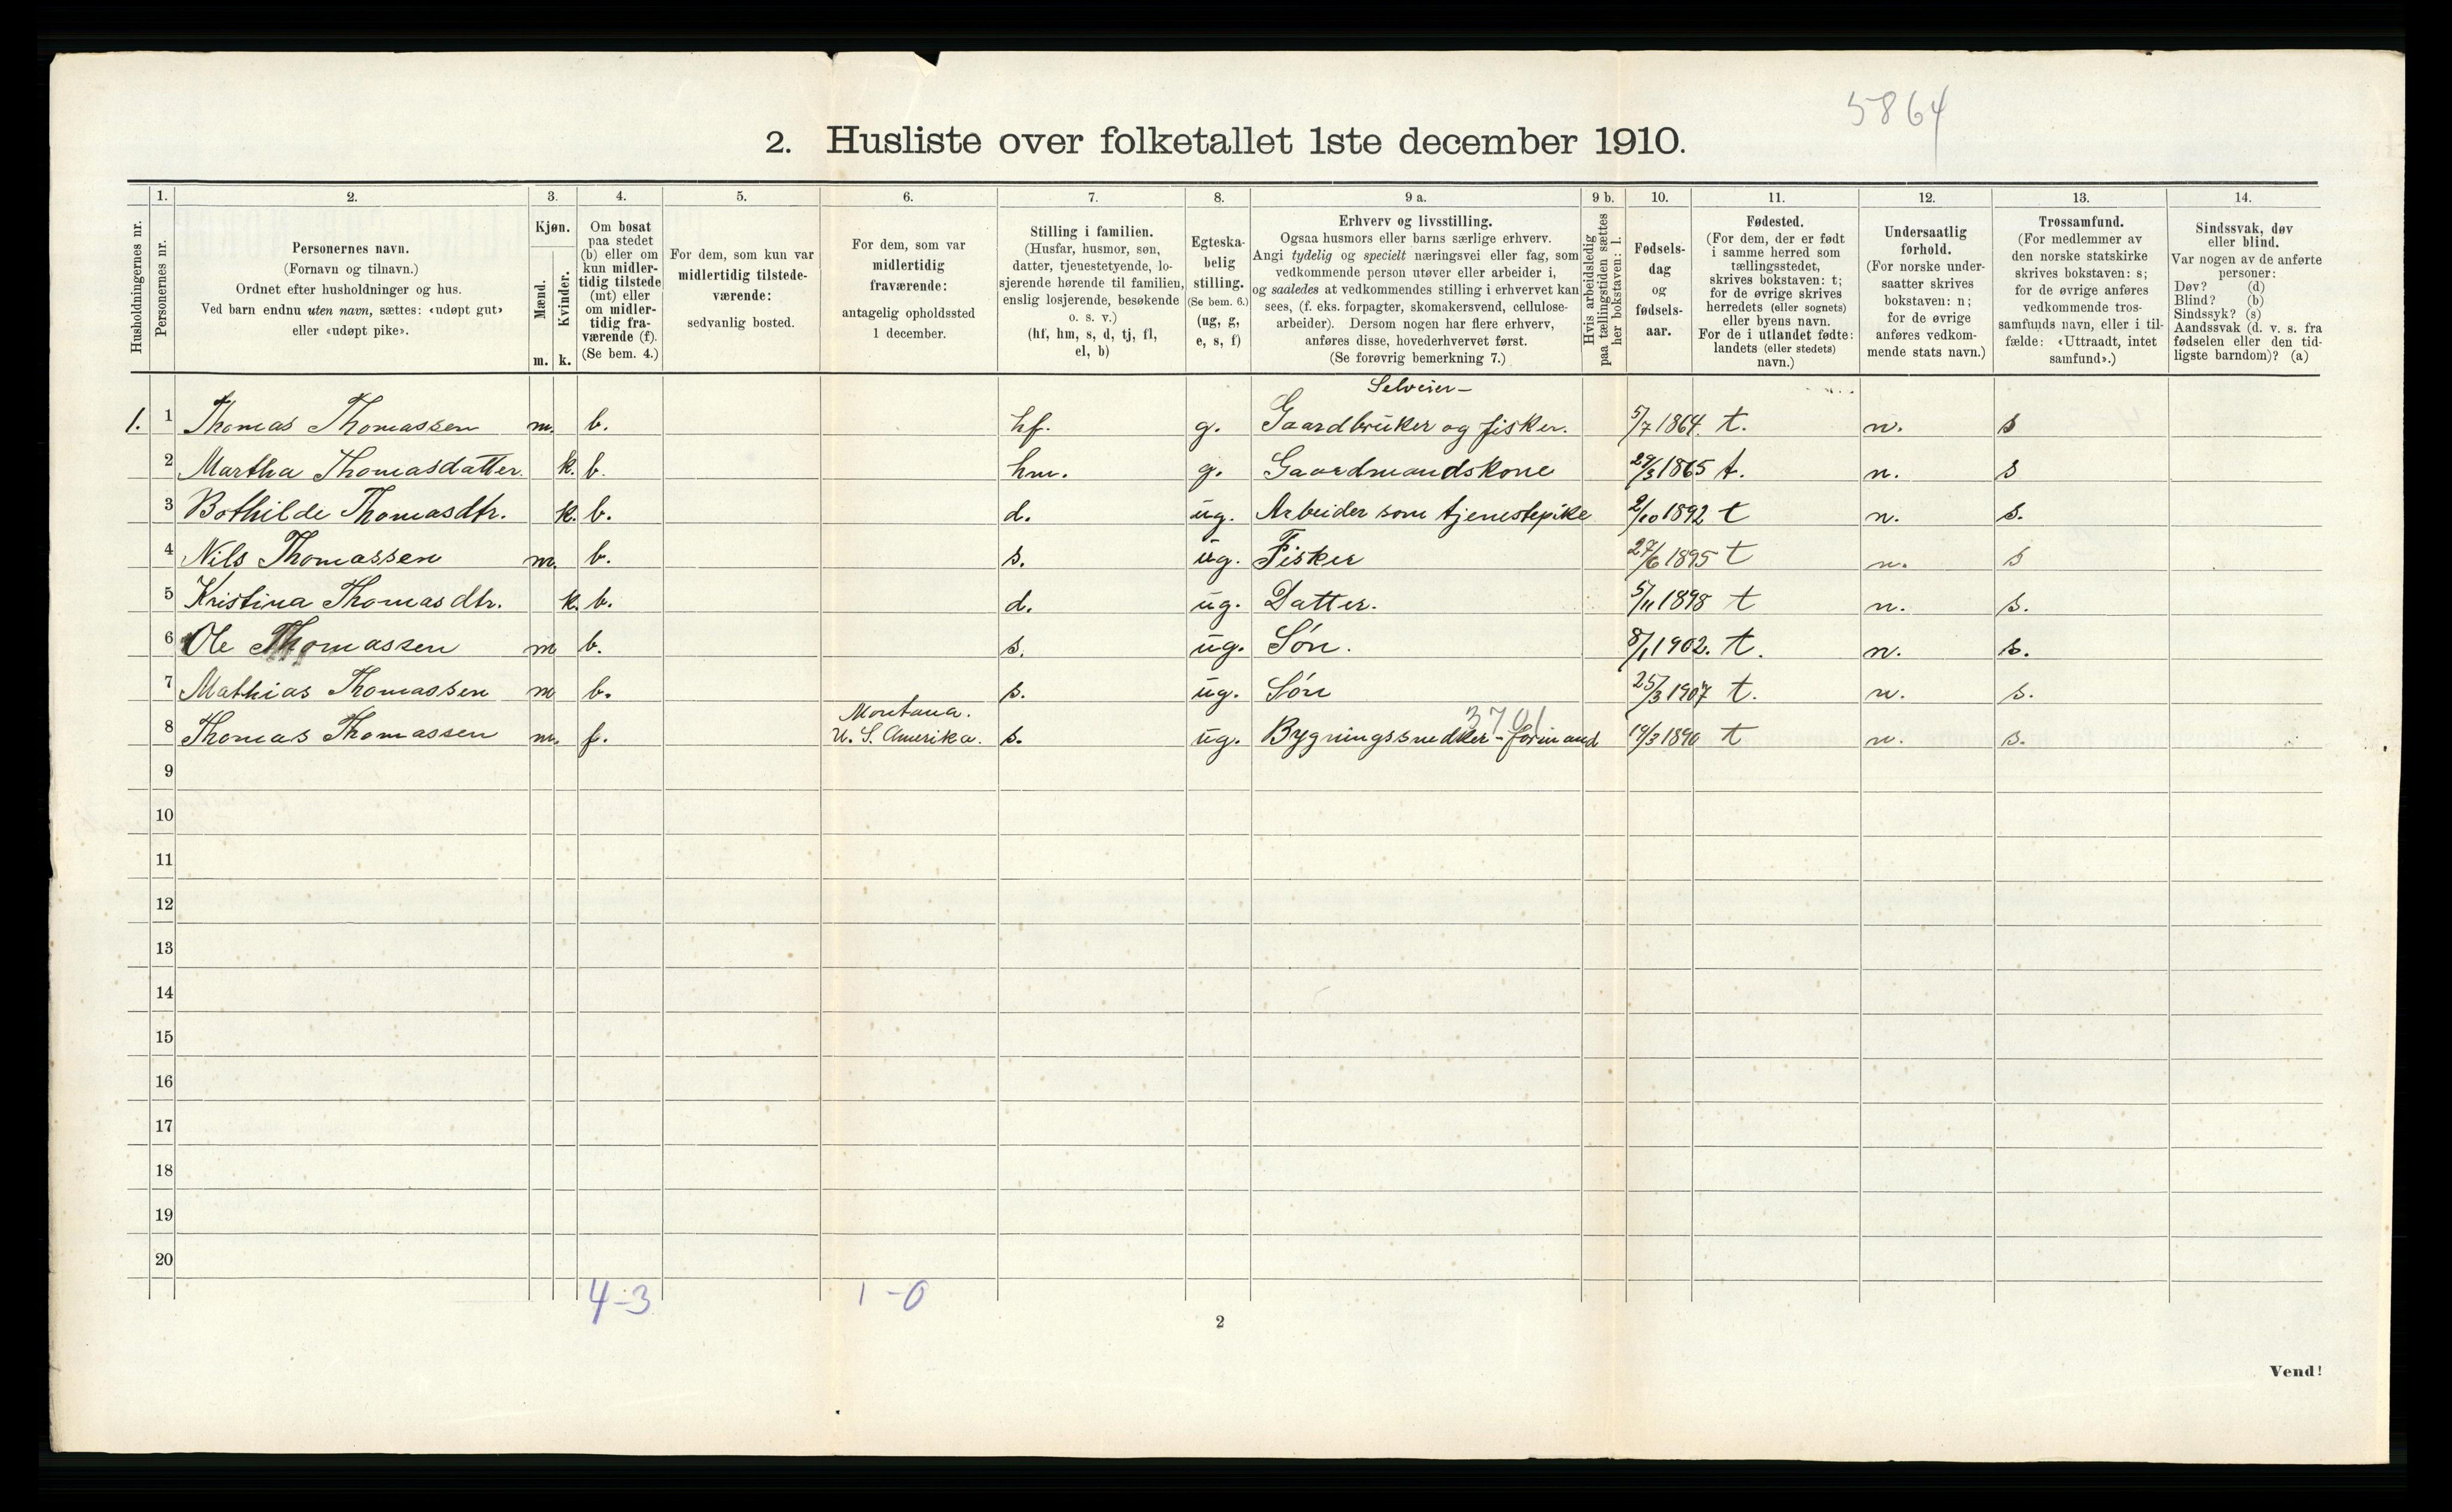 5864
2. Husliste over folketallet 1ste december 1910.
1. 2. 3. 4. 5. 6. 7. 8. 9 a. 9 b. 10. 11. 12. 13. 14.
Husholdningernes nr.
Personernes nr.
Personernes navn.
(Fornavn og tilnavn.)
Ordnet efter husholdninger og hus.
Ved barn endnu uten navn, sættes: «udøpt gut»
eller «udøpt pike».
Kjøn.
Mænd.
Kvinder.
m. k.
Om bosat
paa stedet
(b) eller om
kun midler-
tidig tilstede
(mt) eller
om midler-
tidig fra-
værende (f).
(Se bem. 4.)
For dem, som kun var
midlertidig tilstede-
værende:
sedvanlig bosted.
For dem, som var
midlertidig
fraværende:
antagelig opholdssted
1 december.
Stilling i familien.
(Husfar, husmor, søn,
datter, tjenestetyende, lo-
sjerende hørende til familien,
enslig losjerende, besøkende
o. s. v.)
(hf, hm, s, d, tj, fl,
el, b)
Egteska-
belig
stilling.
(Se bem. 6.)
(ug, g,
e, s, f)
Erhverv og livsstilling.
Ogsaa husmors eller barns særlige erhverv.
Angi tydelig og specielt næringsvei eller fag, som
vedkommende person utøver eller arbeider i,
og saaledes at vedkommendes stilling i erhvervet kan
sees, (f. eks. forpagter, skomakersvend, cellulose-
arbeider). Dersom nogen har flere erhverv,
anføres disse, hovederhvervet først.
(Se forøvrig bemerkning 7.)
Hvis arbeidsledig
paa tællingstiden sættes
her bokstaven: l.
Fødsels-
dag
og
fødsels-
aar.
Fødested.
(For dem, der er født
i samme herred som
tællingsstedet,
skrives bokstaven: t;
for de øvrige skrives
herredets (eller sognets)
eller byens navn.
For de i utlandet fødte:
landets (eller stedets)
navn.)
Undersaatlig
forhold.
(For norske under-
saatter skrives
bokstaven: n;
for de øvrige
anføres vedkom-
mende stats navn.)
Trossamfund.
(For medlemmer av
den norske statskirke
skrives bokstaven: s;
for de øvrige anføres
vedkommende tros-
samfunds navn, eller i til-
fælde: «Uttraadt, intet
samfund».)
Sindssvak, døv
eller blind.
Var nogen av de anførte
personer:
Døv? (d)
Blind? (b)
Sindssyk? (s)
Aandssvak (d. v. s. fra
fødselen eller den tid-
ligste barndom)? (a)
Selveier-
1. 1 Thomas Thomassen m. b. hf. g. Gaardbruker og fisker. 5/7 1864. t. n. s
2 Martha Thomasdatter. k. b. hm. g. Gaardmandskone 29/3 1865 t. n. s
3 Bothilde Thomasdtr. k. b. d. ug. Arbeider som tjenestepike 2/10 1892 t n. s.
4 Nils Thomassen m. b. s. ug. Fisker 27/6 1895 t n. s
5 Kristina Thomasdtr. k. b. d. ug. Datter. 5/11 1898 t n. s.
6 Ole Thomassen m b. s. ug. Søn. 8/1 1902. t. n. s.
7 Mathias Thomassen m b. s. ug. Søn 25/3 1907 t. n. s.
Montana. 3701
8 Thomas Thomassen m. f. U. S. Amerika. s. ug. Bygningssnedker-formand 19/3 1890 t n. s.
9
10
11
12
13
14
15
16
17
18
19
20
4-3 1-0
2
Vend!